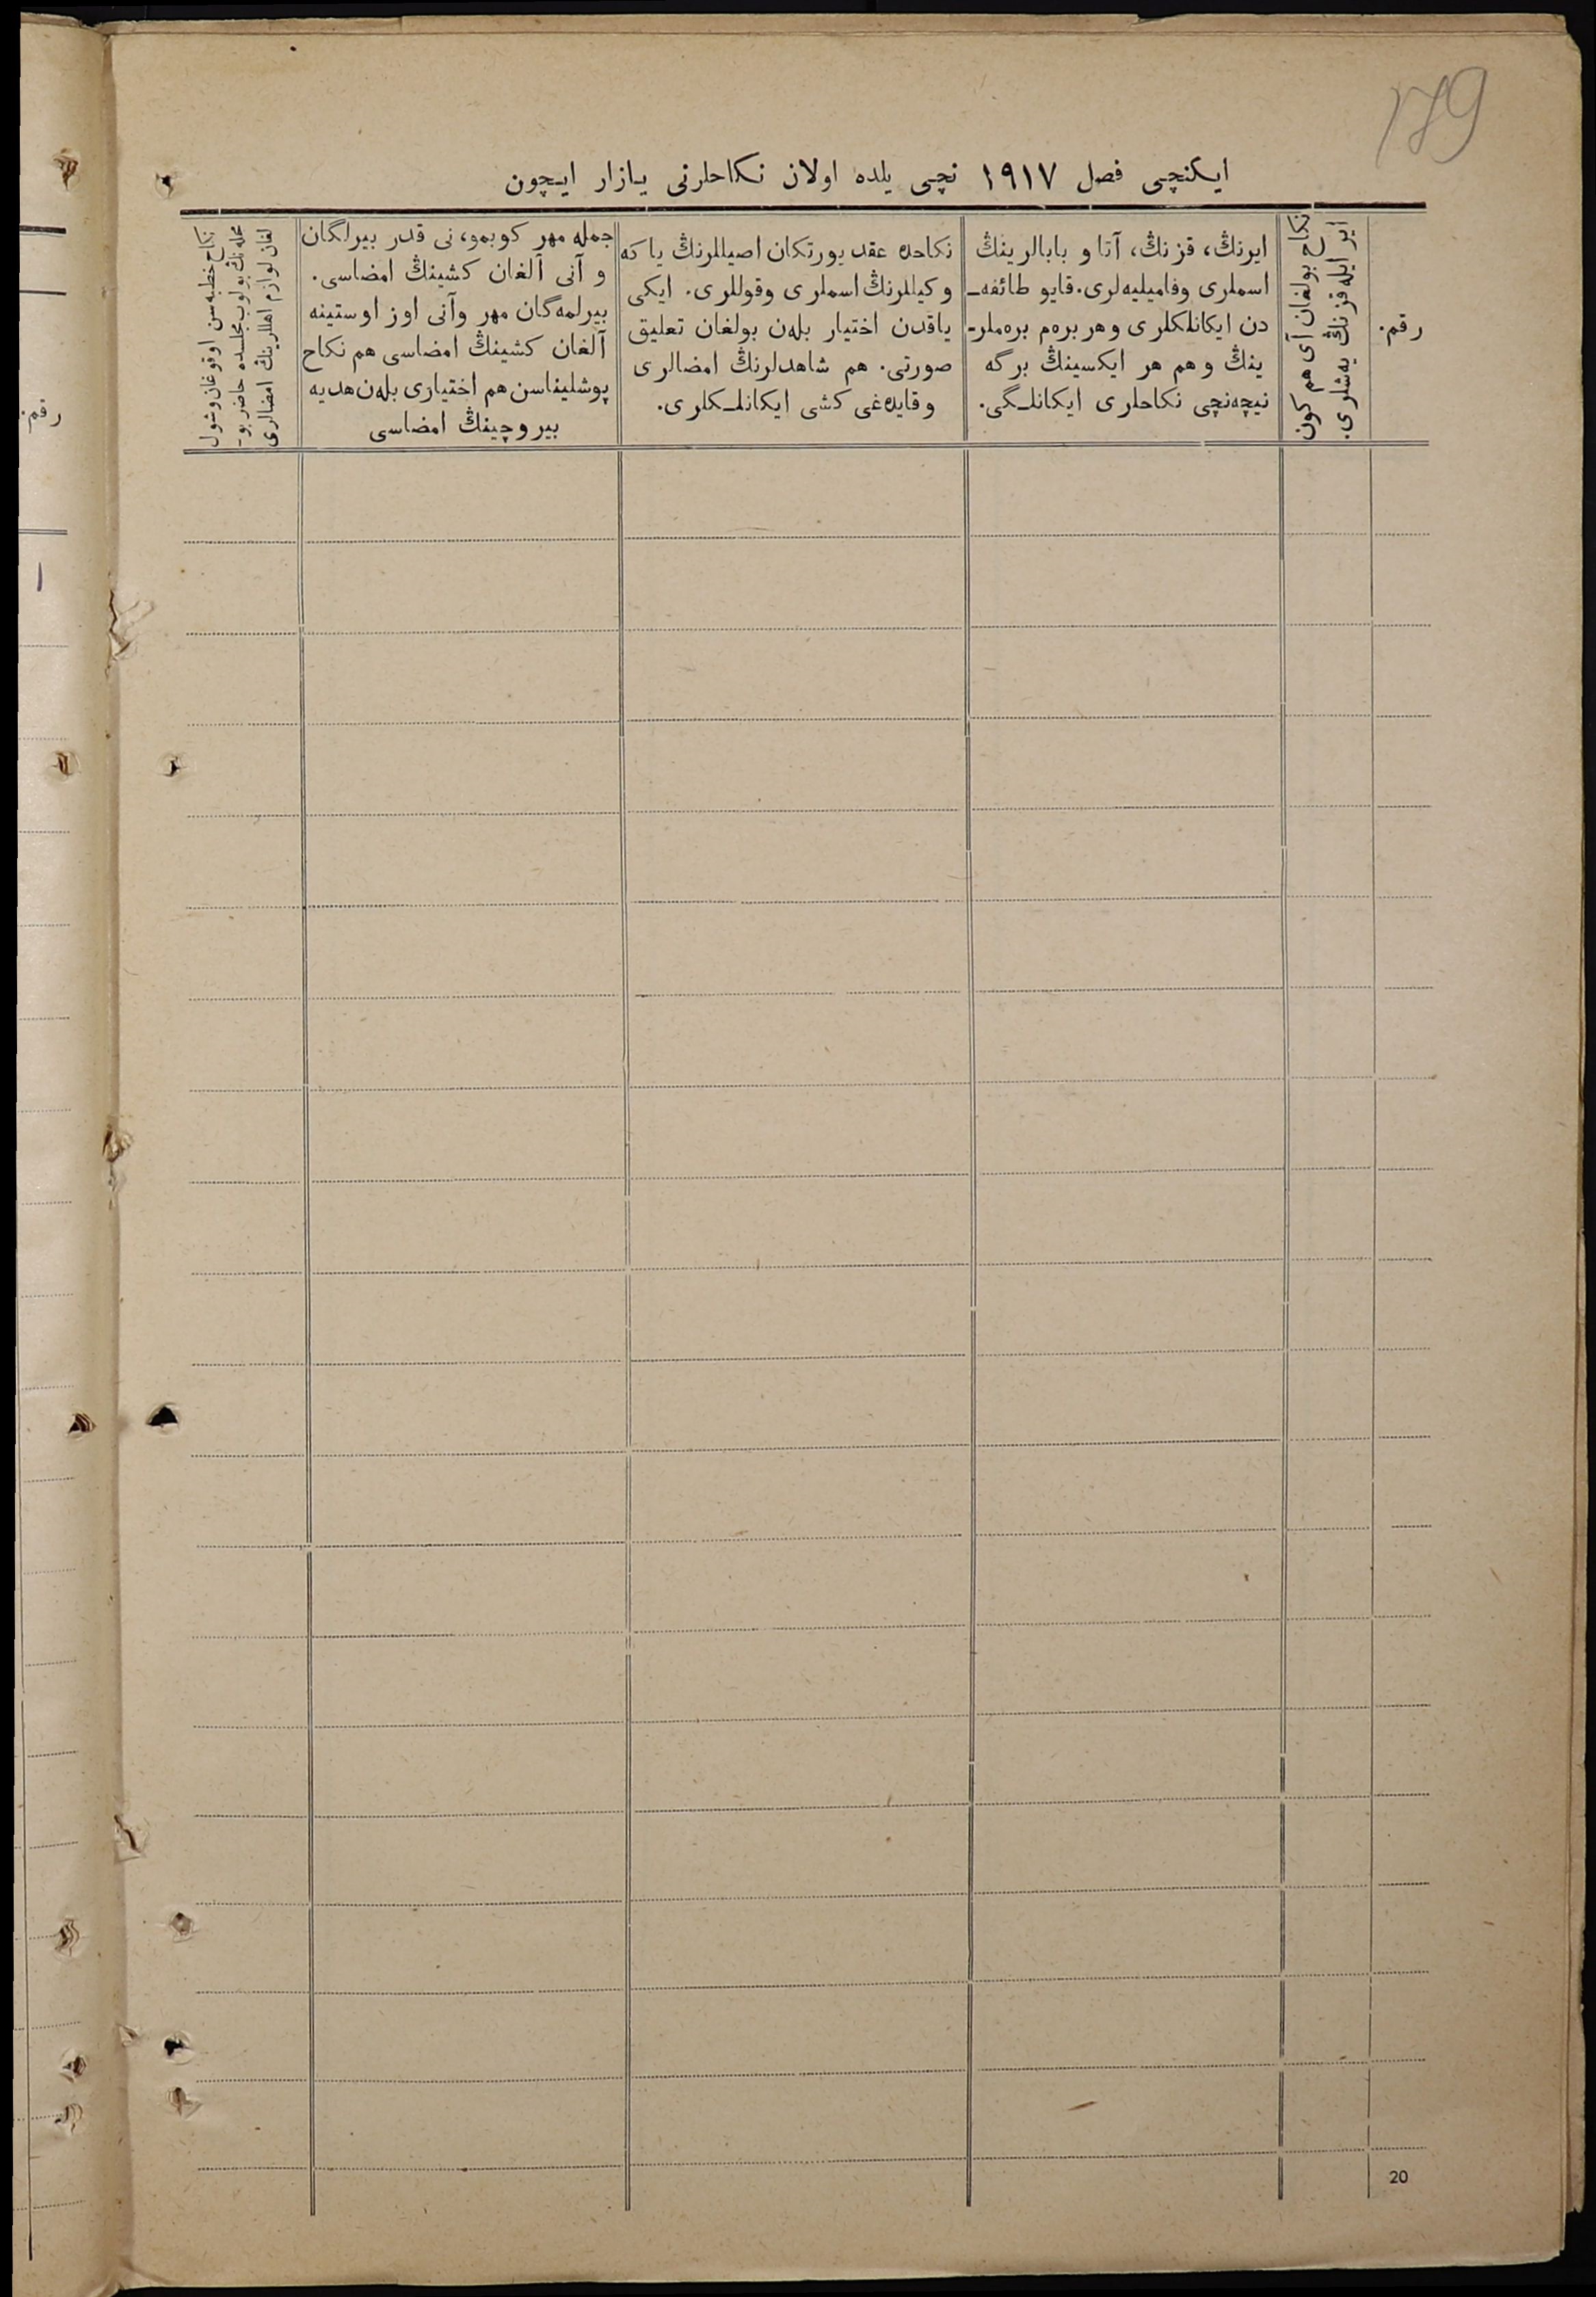 179
ایکنچی فصل ۱۹۱۷ نچی یلده اولان نکاحلرنی یازار ایچون
رقم.
نکاح بولغان آی هم کون
ایر ایله قزنڭ یه‌شلری.
ایرنڭ، قزنڭ، آتا و بابالرینڭ
اسملری وفامیلیه‌لری. قایو طائفه‌ـ
دن ایکانلکلری وهر بره‌م بره‌ملرـ
ینڭ وهم هر ایکسینڭ برگه
نیچه‌نچی نکاحلری ایکانلـگی.
نکاحده عقد یورتکان اصیللرنڭ یا که
وکیللرنڭ اسملری وقوللری. ایکی
یاقدن اختیار بله‌ن بولغان تعلیق
صورتی. هم شاهدلرنڭ امضالری
وقایده‌غی کشی ایکانلـکلری.
جمله مهر کوبمو، نی قدر بیرلگان
و آنی آلغان کشینڭ امضاسی.
بیرلمه‌گان مهر وآنی اوز اوستینه
آلغان کشینڭ امضاسی هم نکاح
پوشلیناسن هم اختیاری بله‌ن هدیه
بیروچینڭ امضاسی
نکاح خطبه‌سن اوقوغان وشول
محله‌نڭ بولوب مجلسده حاضر بوـ
لغان لوازم اهللرینڭ امضالری
رقم.
۱
20